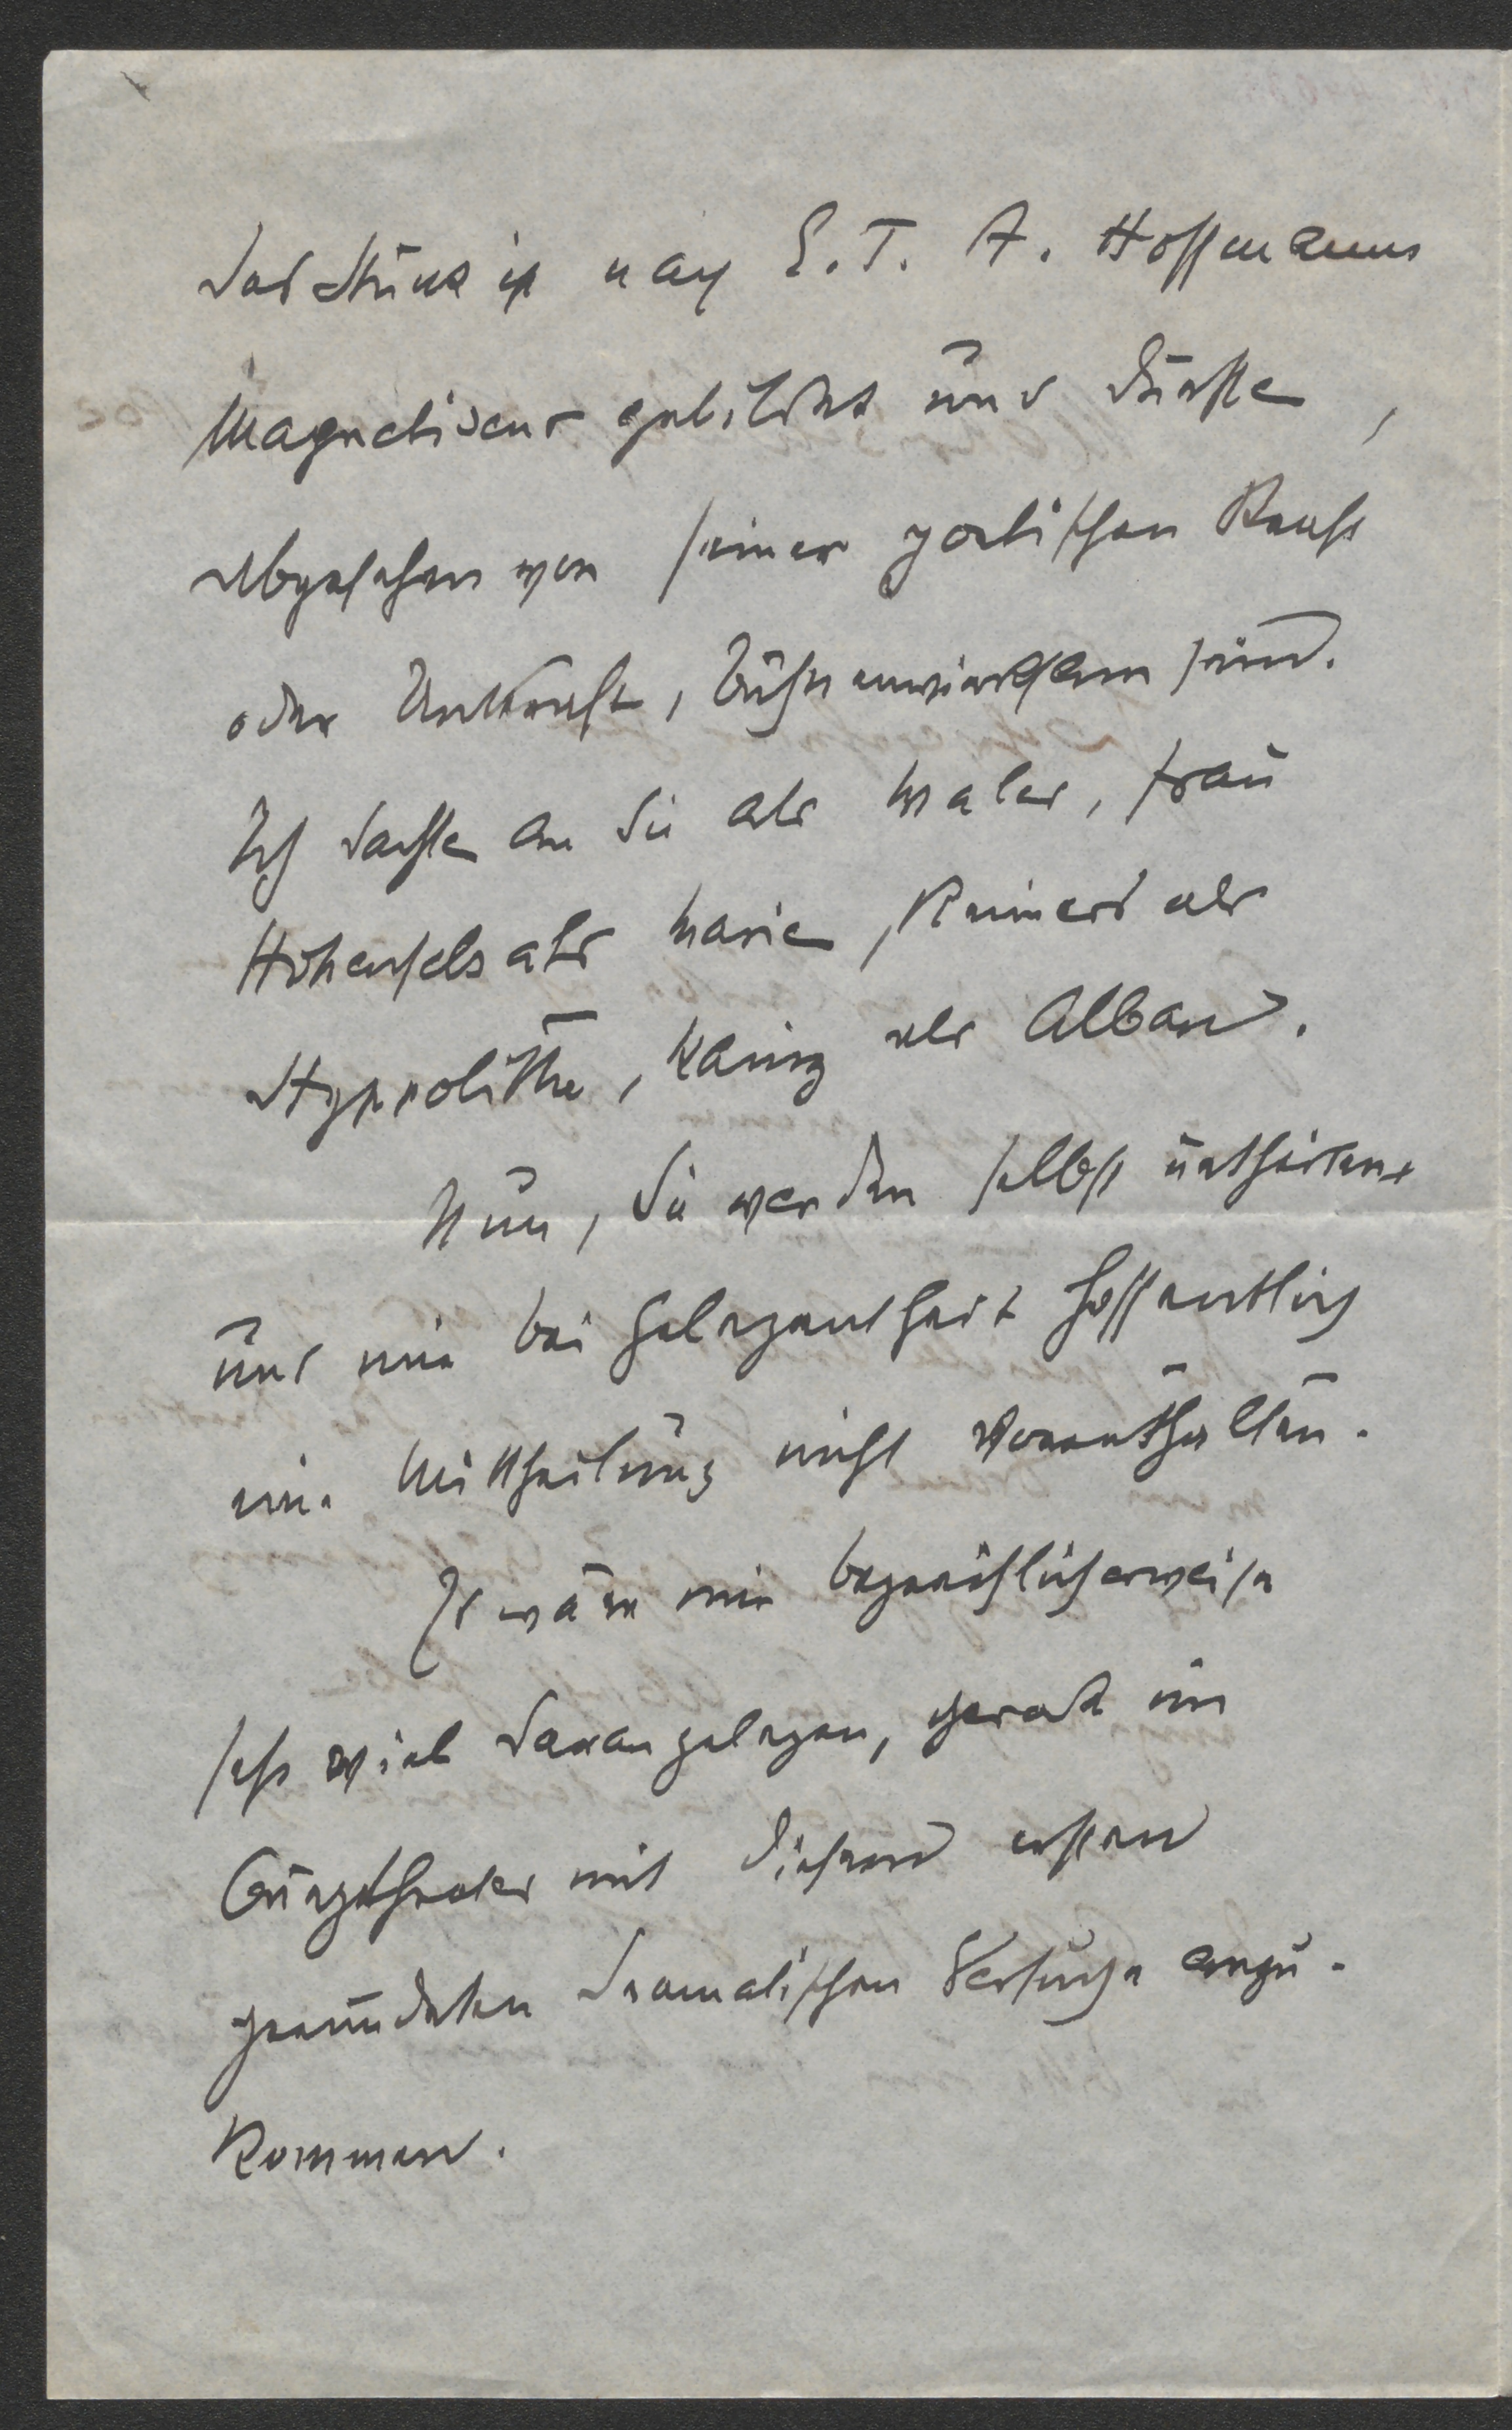 Das Stück ist nach E. T. A. Hoffmanns
Magnetiseur gebildet und dürfte,
abgesehen von seiner poetischen Kraft
oder Unkraft, bühnenwirksam sein.
Ich dachte an Sie als Maler, Frau
Hohenfels als Marie, Reimers als
Hyppolithe, Kainz als Alban.
Nun, Sie werden selbst urtheilen
und mir bei Gelegenheit hoffentlich
eine Mittheilung nicht vorenthalten.
Es wäre mir begreiflicherweise
sehr viel daran gelegen, gerade im
Burgtheater mit diesem ersten
gerundeten dramatischen Versuche anzu-
kommen.